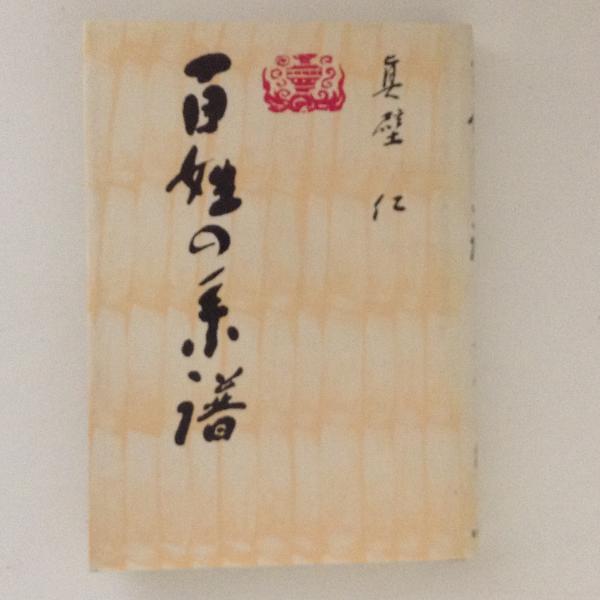 真壁 仁
百姓の系譜